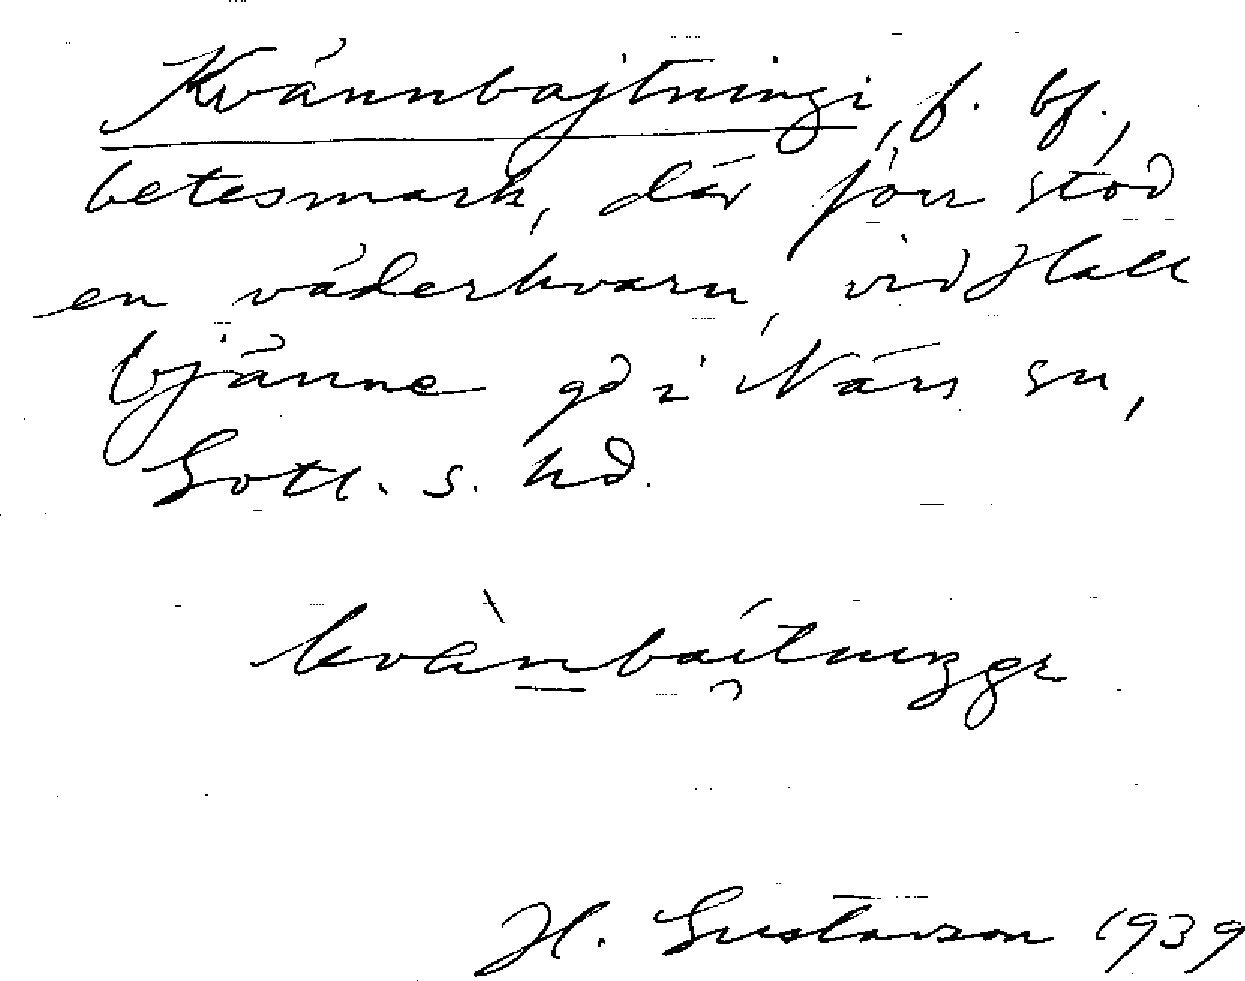 Kvännbajtningi, f. bf.,
betesmark, där förr stod
en väderkvarn, vid Hall
bjänne gd i Närs sn,
Gotl. s. hd.
kvänbaitnıŋgı
H. Gustavson 1939